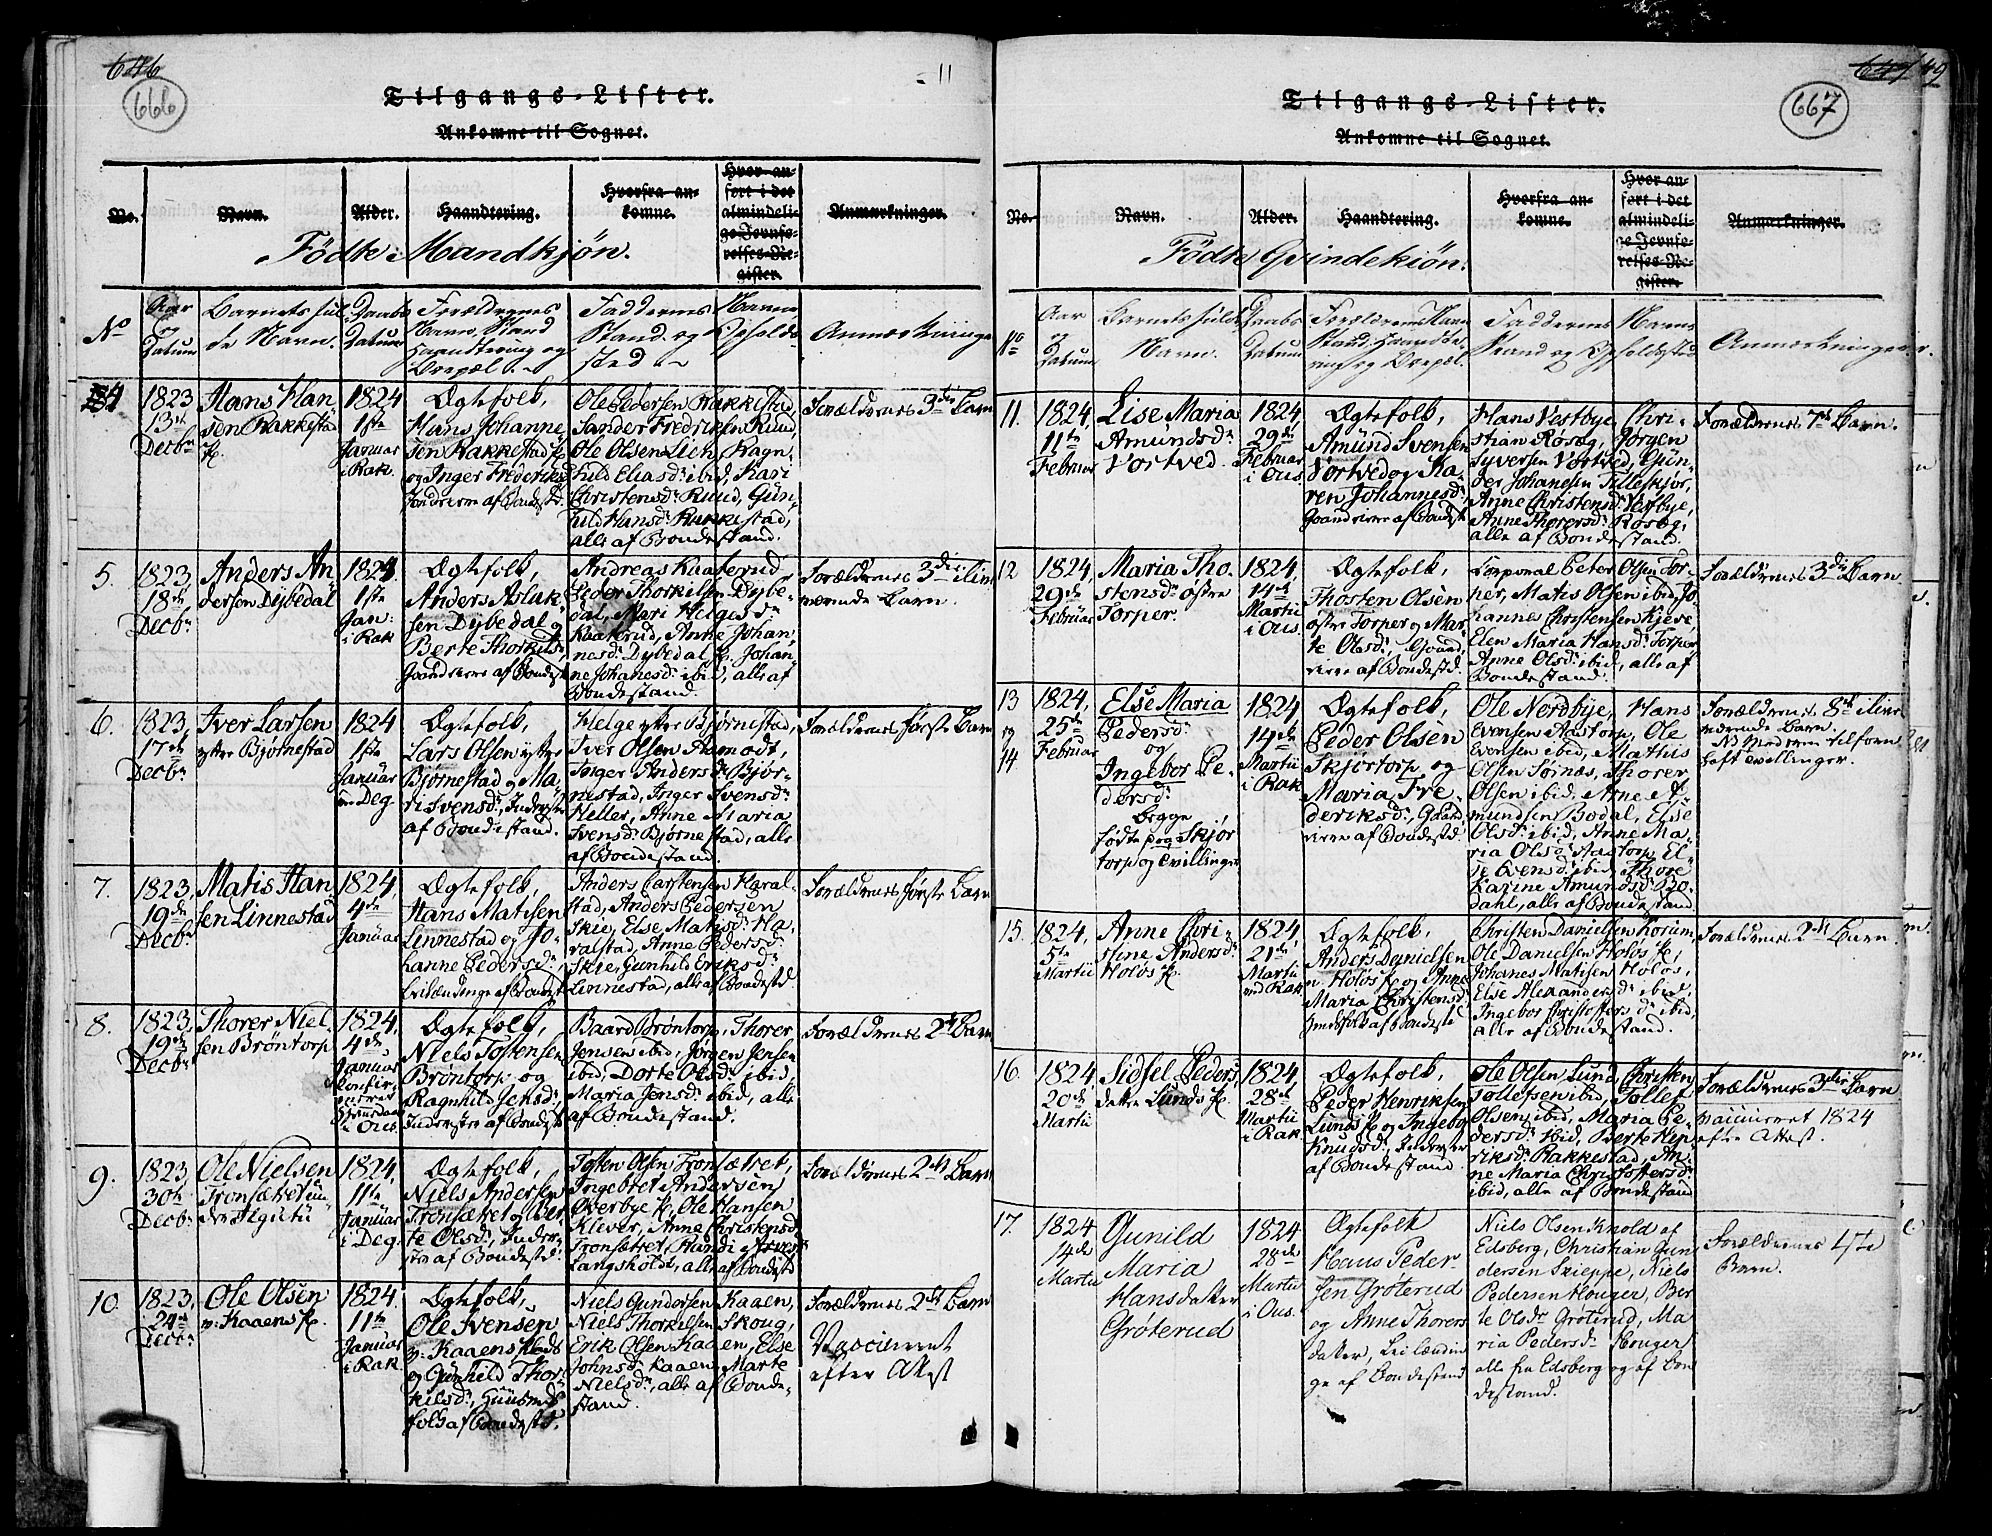 646
666
11
Tilgangs-Lister.
Ankomne til Sognet.
No.
Navn.
Alder.
Haandtering.
Hvorfra an-
komne.
Hvor an-
ført i det
almindeli-
ge Jevnfø-
relses-Re-
gister.
Anmærkninger.
Födte Mandkjön.
No
Aar
og
Datum
Barnets ful-
de Navn.
Daabs
Datum
Forældrenes
Navn, Stand
Haandtering og
Bopæl
Faddernes Navne
Stand og Opholds-
sted
Anmærkninge
4
1823
13de
Decbr
Hans Han
sen Rakkestad
1824
1ste
Januar
i Rak.
Ægtefolk,
Hans Johanne
sen Rakkestad
og Inger Frederiksd
Gaardeiere af Bondestd.
Ole Pedersen Rakkestad,
Sander Fredriksen Ruud,
Ole Olsen Lien, Ragn-
hild Eliasd: ibid, Kari
Christensd: Ruud, Gün-
hild Hansd: Rakkestad,
alle af Bondestand.
Forældrenes 3die Barn
5.
1823,
18de
Decbr
Anders An
dersen Dybedal
1824
1ste
Jan:
i Rak
Ægtefolk,
Anders Aslak-
sen Dybedal og
Berte Thorkilsd:
Gaardeiere af Bondest
Andreas Kaaterud
Peder Thorkilsen Dybe-
dal, Mari Helgesd:
Kaaterud, Anne Johan
nesd: Dybedal, Johan-
ne Johanesd: ibid, alle af
Bondestand.
Forældrenes 3die ilive
værende Barn.
6.
1823,
17de
Decbr
Iver Larsen
ytre Bjørnestad
1824
1ste
Januar
i Deg
Ægtefolk,
Lars Olsen ytre
Bjørnestad og Ma-
ri Svensd:, Inderster
af Bondestand.
Helge ytre Bjørnestad,
Iver Olsen Aamodt,
Inger Andersd: Bjør-
nestad, Inger Svensd:
Heller, Anne Maria
Svensd: Bjørnestad, alle
af Bondestand.
Forældrenes første Barn
7.
1823,
19de
Decbr
Matis Han
sen Linnestad
1824,
4de
Januar
Ægtefolk,
Hans Matisen
Linnestad og Jo-
hanne Pedersd:,
Leilændinge af Bondest
Anders Carstensen Haral-
stad, Anders Pedersen
Skie, Else Matisd: Ha-
ralstad, Anne Pedersd:
Skie, Gunhild Eriksd:
Linnestad, alle af Bondestd
Forældrenes første Barn
8.
1823,
19de
Decbr
Thorer Niel-
sen Brøntorp
1824,
4de
Januar
i Ous.
Ægtefolk,
Niels Tostensen
Brøntorp og
Ragnhild Jensd:,
Inderster af Bondest
Baard Brøntorp, Thorer
Jensen ibid, Jørgen Jensen
ibid, Dorte Olsd: ibid,
Maria Jensd: ibid, alle
af Bondestand.
Forældrenes 2det Barn
9.
1823,
30te
Decbr
Ole Nielsen
Tronsætret
1824,
11te
Januar
i Deg.
Ægtefolk,
Niels Andersen
Tronsætret og Ber
te Olsd:, Inder-
ster af Bondestd.
Tosten Olsen Tronsætret,
Ingebret Andersen
Øverbye, Ole Hansen
Klever, Anne Christensd:
Tronsætret, Randi Iversd
Langsholdt, alle af Bondestd
Forældrenes 2det Barn
10.
1823,
24de
Decbr
Ole Olsen
Kaaens
1824.
11te
Januar
i Rak
Ægtefolk,
Ole Svensen
Kaaens Plads
og Günhild Thor-
kilsd:, Huusmds
folk af Bondestd.
Niels Gundersen Kaaen,
Niels Thorkilsen Skoug,
Erik Olsen Kaaen, Else
Johnsd: Kaaen, Marte
Nielsd:, alle af Bonde-
stand.
Forældrenes 2det Barn
Vaccineret
efter Attest
667
Tilgangs-Lister.
Ankomne til Sognet.
No.
Navn.
Alder.
Haandtering.
Hvorfra an-
komne.
Hvor an-
ført i det
almindeli-
ge Jevnfø-
relses-Re-
gister.
Anmærkninger.
Födte Qvindekiön.
No
Aar
og
Datum
Barnets fulde
Navn.
Daabs
Datum
Forældrenes Navn
Stand, Haandte-
ring og Bopæl.
Faddernes Navne
Stand og Opholdssted
Anmærkninger.
11.
1824,
11te
Februar
Lise Maria
Amundsd:
Vortved
1824,
29de
Februar
i Ous.
Ægtefolk,
Amünd Svensen
Vortved og Ka-
ren Johannesd:
Gaardeiere af Bondest
Hans Vestbye, Chri-
stian Røsøg, Jørgen
Syversen Vortved, Gün-
der Johanesen Tilleskjør,
Anne Christensd: Vestbye,
Anne Thorersd: Røsøg,
alle af Bondestand.
Forældrenes 7de Barn.
12
1824,
29de
Februar
Maria Tho-
stensd: østre
Torper.
1824,
14de
Martii
i Ous.
Ægtefolk,
Thosten Olsen
østre Torper og Mar-
te Olsd:, Gaard-
eiere af Bondestd.
Corporal Peter Olsen Tor-
per, Matis Olsen ibid, Jo-
hannes Christensen Kjeve
Elen Maria Hansd: Torper
Anne Olsd: ibid, alle af
Bondestand.
Forældrenes 3die Barn
13
og
14
1824,
25de
Februar
Else Maria
Pedersd:
og
Ingebor Pe-
dersd:
begge
fødte paa Skjør
torp og tvillinger
1824
14de
Martii
i Rak
Ægtefolk,
Peder Olsen
Skjørtorp og
Maria Fre-
deriksd:, Gaard-
eiere af Bondestd
Ole Nordbye, Hans
Evensen Aastorp, Ole
Evensen ibid, Mathis
Olsen Søinæs, Thorer
Olsen ibid, Arne A-
mundsen Bodal, Else
Olsd: ibid, Anne Ma-
ria Olsd: Aastorp, El-
se Evensd: ibid, Thore
Karine Amundsd: Bo-
dahl, alle af Bondestand.
Forældrenes 8de ilive
værende Barn.
NB Moderen tilforn
haft tvillinger.
15.
1824,
5te
Martii
Anne Chri-
stine Andersd:
Holøs
1824,
21de
Martii
ved Rak.
Ægtefolk,
Anders Danielsen
Holøs og Anne
Maria Christensd:
Huusfolk af Bondestd
Christen Danielsen Lorum,
Ole Danielsen Holøs,
Johanes Matisen Holøs,
Else Alexandersd: ibid,
Ingebor Christofersd: ibid,
alle af Bondestand.
Forældrenes 2det Barn.
16.
1824
20de
Martii
Sidsel Peders
datter Lunds
1824
28de
Martii
i Rak
Ægtefolk,
Peder Henriksen
Lunds og Ingebor
Knudsd:, Inderster
af Bondestand
Ole Olsen Lund, Christen
Tollefsen ibid, Tollef
Olsen ibid, Maria Pe-
dersd: ibid, Berte Hen-
riksd: Rakkestad, An-
ne Maria Christofersd:
ibid, alle af Bondestand
Forældrenes 3die Barn
vaccineret 1824
efter Attest.
17.
1824
14de
Martii
Gunild
Maria
Hansdatter
Gröterud
1824
28de
Martii
i Ous.
Ægtefolk
Hans Peder-
sen Gröterud
og Anne Thorers
datter, Leilændin
ge af Bondestand
Niels Olsen Knold af
Edsberg, Christian Gun
dersen Skieppe, Niels
Pedersen Houger, Ber
te Olsdr Gröterud, Ma
ria Pedersdr Houger
alle fra Edsberg og af Bon
destand.
Forældrenes 1ste
Barn.